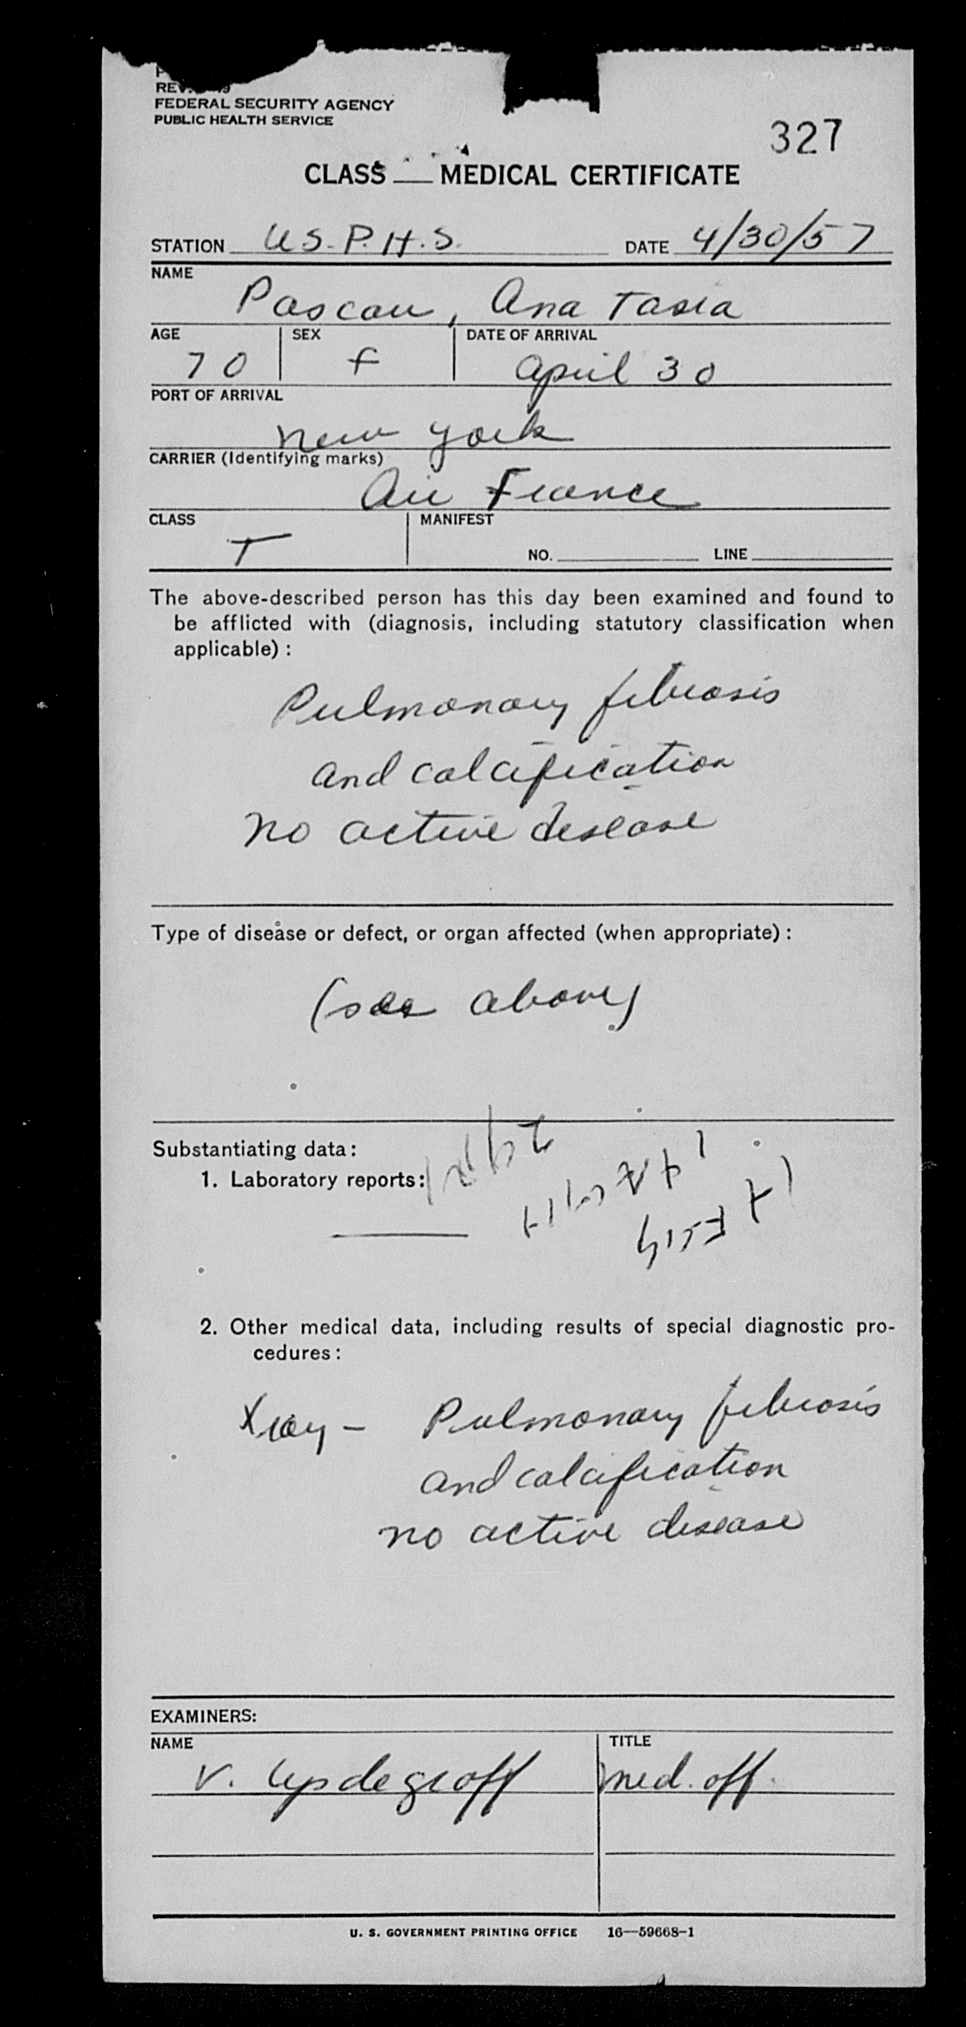 FEDERAL SECURITY AGENCY
PUBLIC HEALTH SERVICE
327
CLASS MEDICAL CERTIFICATE
STATION U.S.P.H.S. DATE 4/30/57
NAME
Pascau, Ana Tasia
AGE SEX DATE OF ARRIVAL
70 F April 30
PORT OF ARRIVAL
New York
CARRIER (Identifying marks)
Air France
CLASS MANIFEST
T NO. LINE
The above-described person has this day been examined and found to
be afflicted with (diagnosis, including statutory classification when
applicable):
Pulmonary fibrosis
and calcification
no active disease
Type of disease or defect, or organ affected (when appropriate):
(see above)
Substantiating data:
1. Laboratory reports:
2. Other medical data, including results of special diagnostic pro-
cedures:
Xray - Pulmonary fibrosis
and calcification
no active disease
EXAMINERS:
NAME TITLE
V. Updegroff med. off.
U. S. GOVERNMENT PRINTING OFFICE 16—59668-1